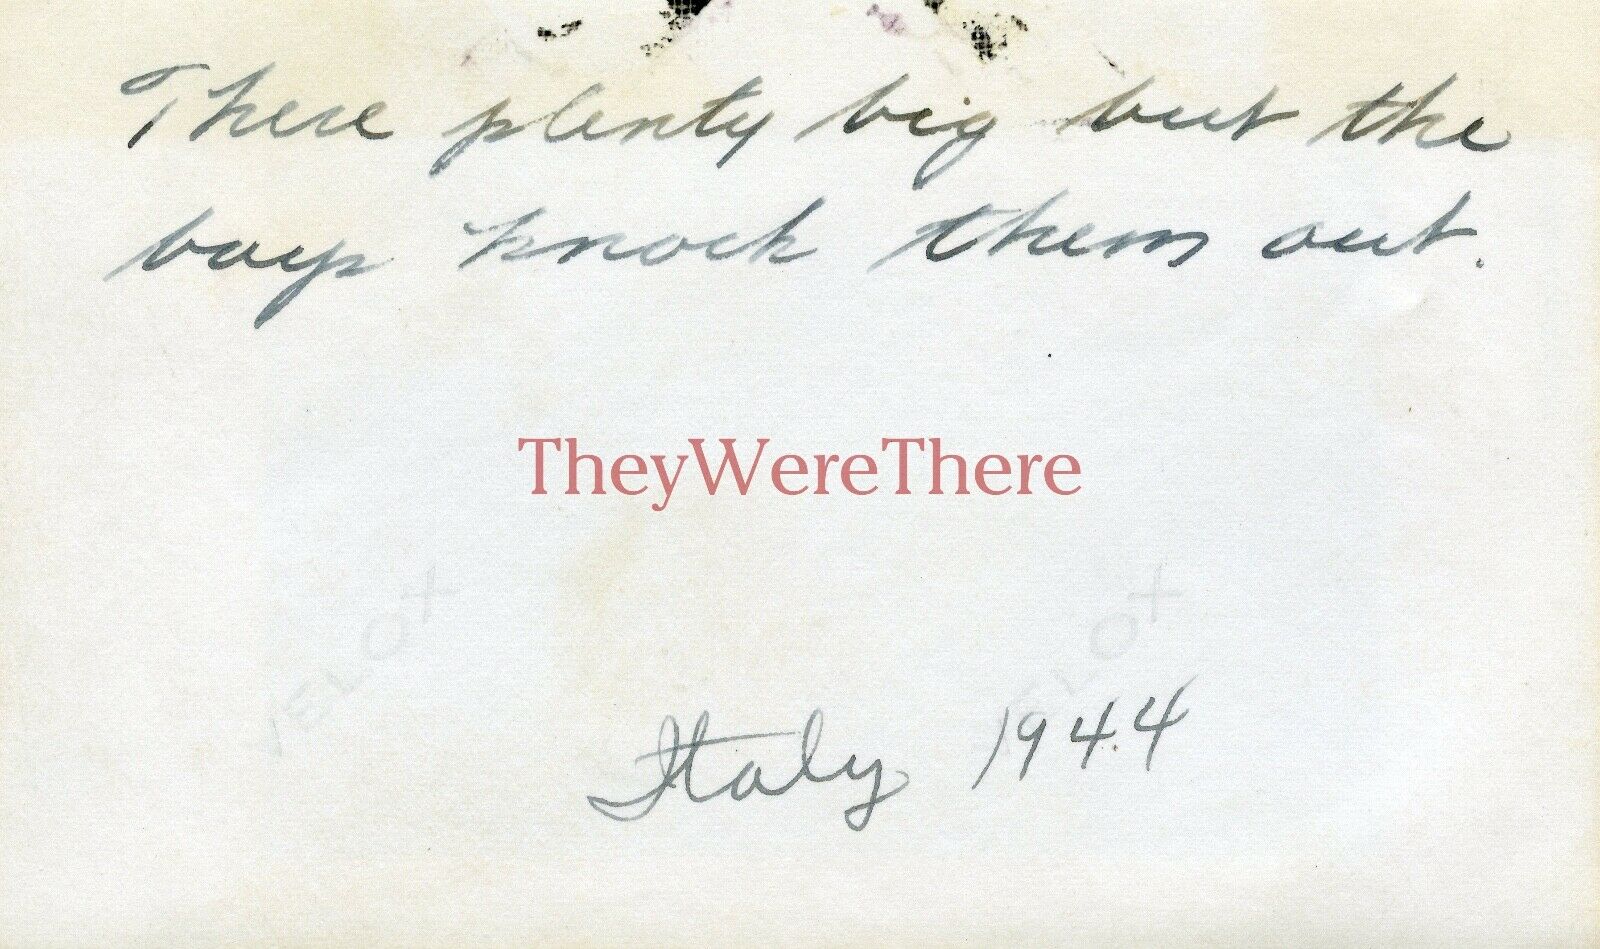 There plenty big but the
boys knock them out.
TheyWereThere
VELOX
VELOX
Italy 1944